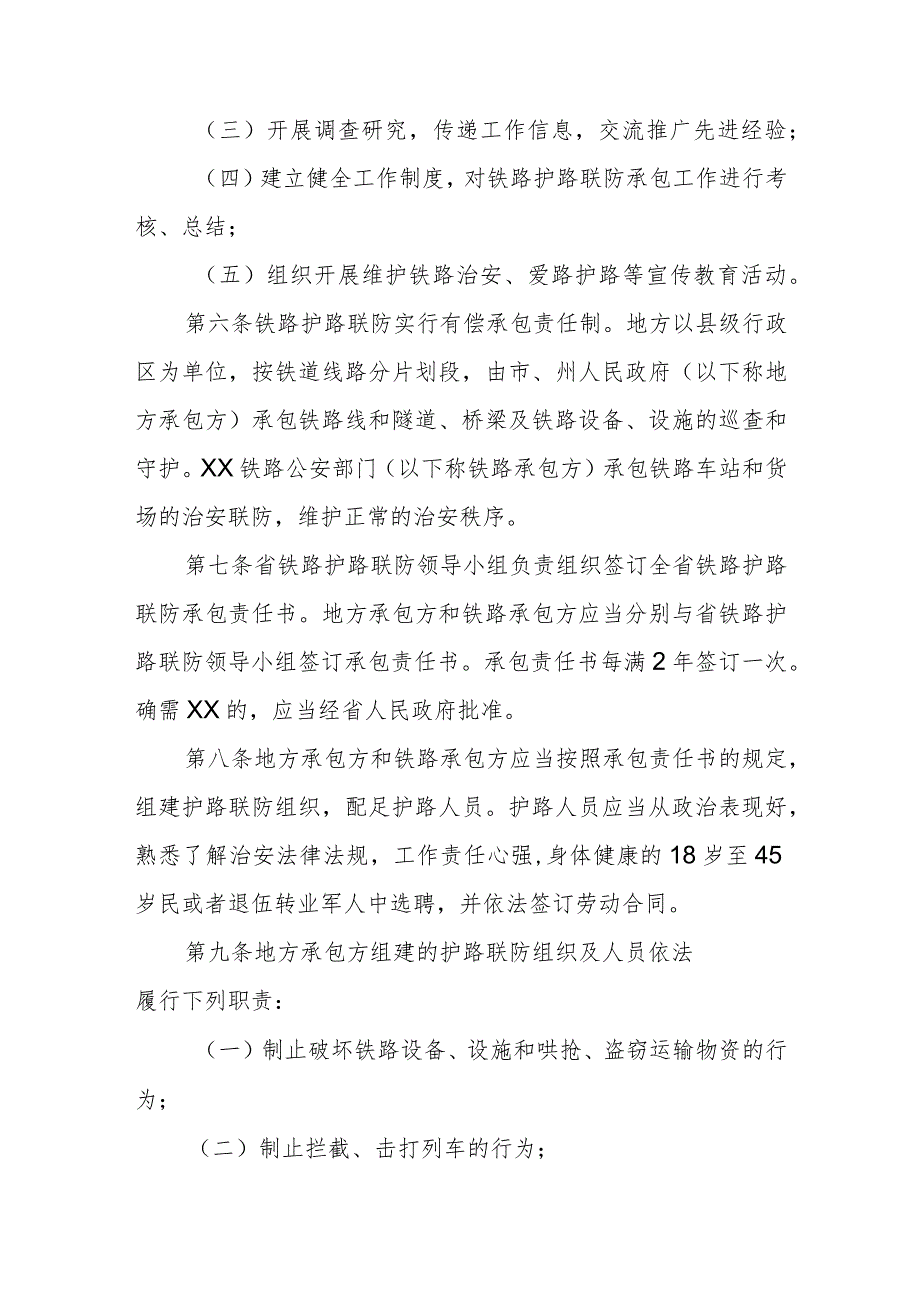 （三）开展调查研究，传递工作信息，交流推广先进经验；
（四）建立健全工作制度，对铁路护路联防承包工作进行考
核、总结；
（五）组织开展维护铁路治安、爱路护路等宣传教育活动。
第六条铁路护路联防实行有偿承包责任制。地方以县级行政
区为单位，按铁道线路分片划段，由市、州人民政府（以下称地
方承包方）承包铁路线和隧道、桥梁及铁路设备、设施的巡查和
守护。XX 铁路公安部门（以下称铁路承包方）承包铁路车站和货
场的治安联防，维护正常的治安秩序。
第七条省铁路护路联防领导小组负责组织签订全省铁路护路
联防承包责任书。地方承包方和铁路承包方应当分别与省铁路护
路联防领导小组签订承包责任书。承包责任书每满 2 年签订一次。
确需 XX 的，应当经省人民政府批准。
第八条地方承包方和铁路承包方应当按照承包责任书的规定，
组建护路联防组织，配足护路人员。护路人员应当从政治表现好，
熟悉了解治安法律法规，工作责任心强,身体健康的 18 岁至 45
岁民或者退伍转业军人中选聘，并依法签订劳动合同。
第九条地方承包方组建的护路联防组织及人员依法
履行下列职责：
（一）制止破坏铁路设备、设施和哄抢、盗窃运输物资的行
为；
（二）制止拦截、击打列车的行为；